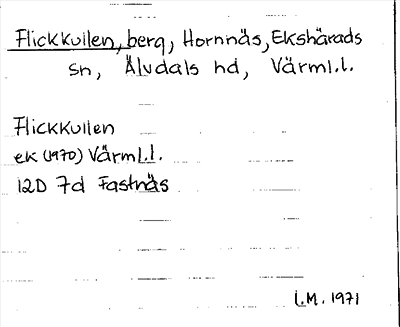 Flickkullen, berg, Hornnäs, Ekshärads
sn, Älvdals hd, Värml.l.
Flickkullen
ek (1970) Värml.l.
12D 7d Fastnäs
L.M. 1971